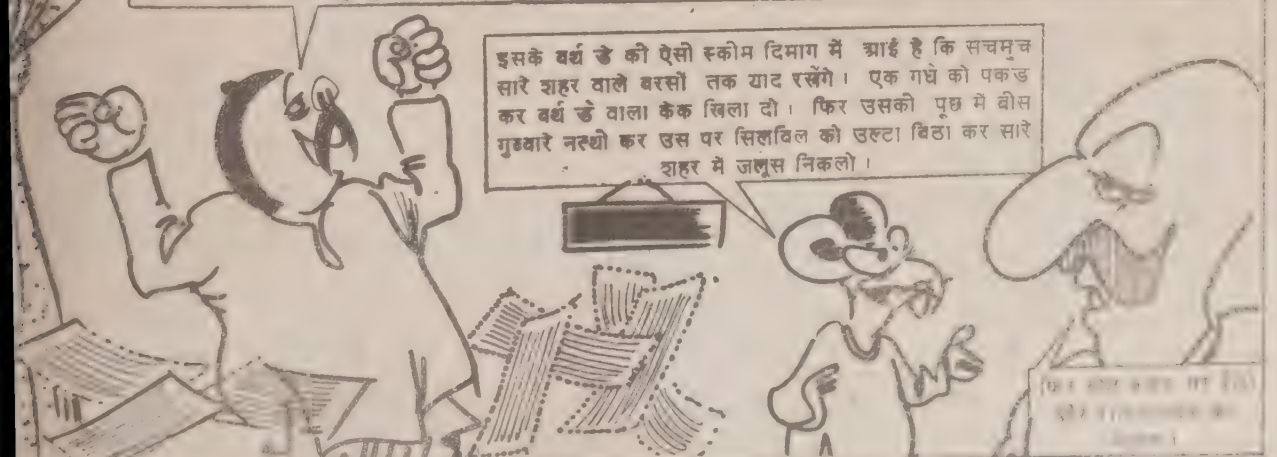 इसके बर्थ डे की ऐसी स्कीम दिमाग में आई है कि सचमुच
सारे शहर वाले बरसों तक याद रखेंगे। एक गधे को पकड़
कर बर्थ डे वाला केक खिला दो। फिर उसकी पूछ में बीस
गुब्बारे नत्थी कर उस पर सिलबिल को उल्टा बिठा कर सारे
शहर में जलूस निकलो।